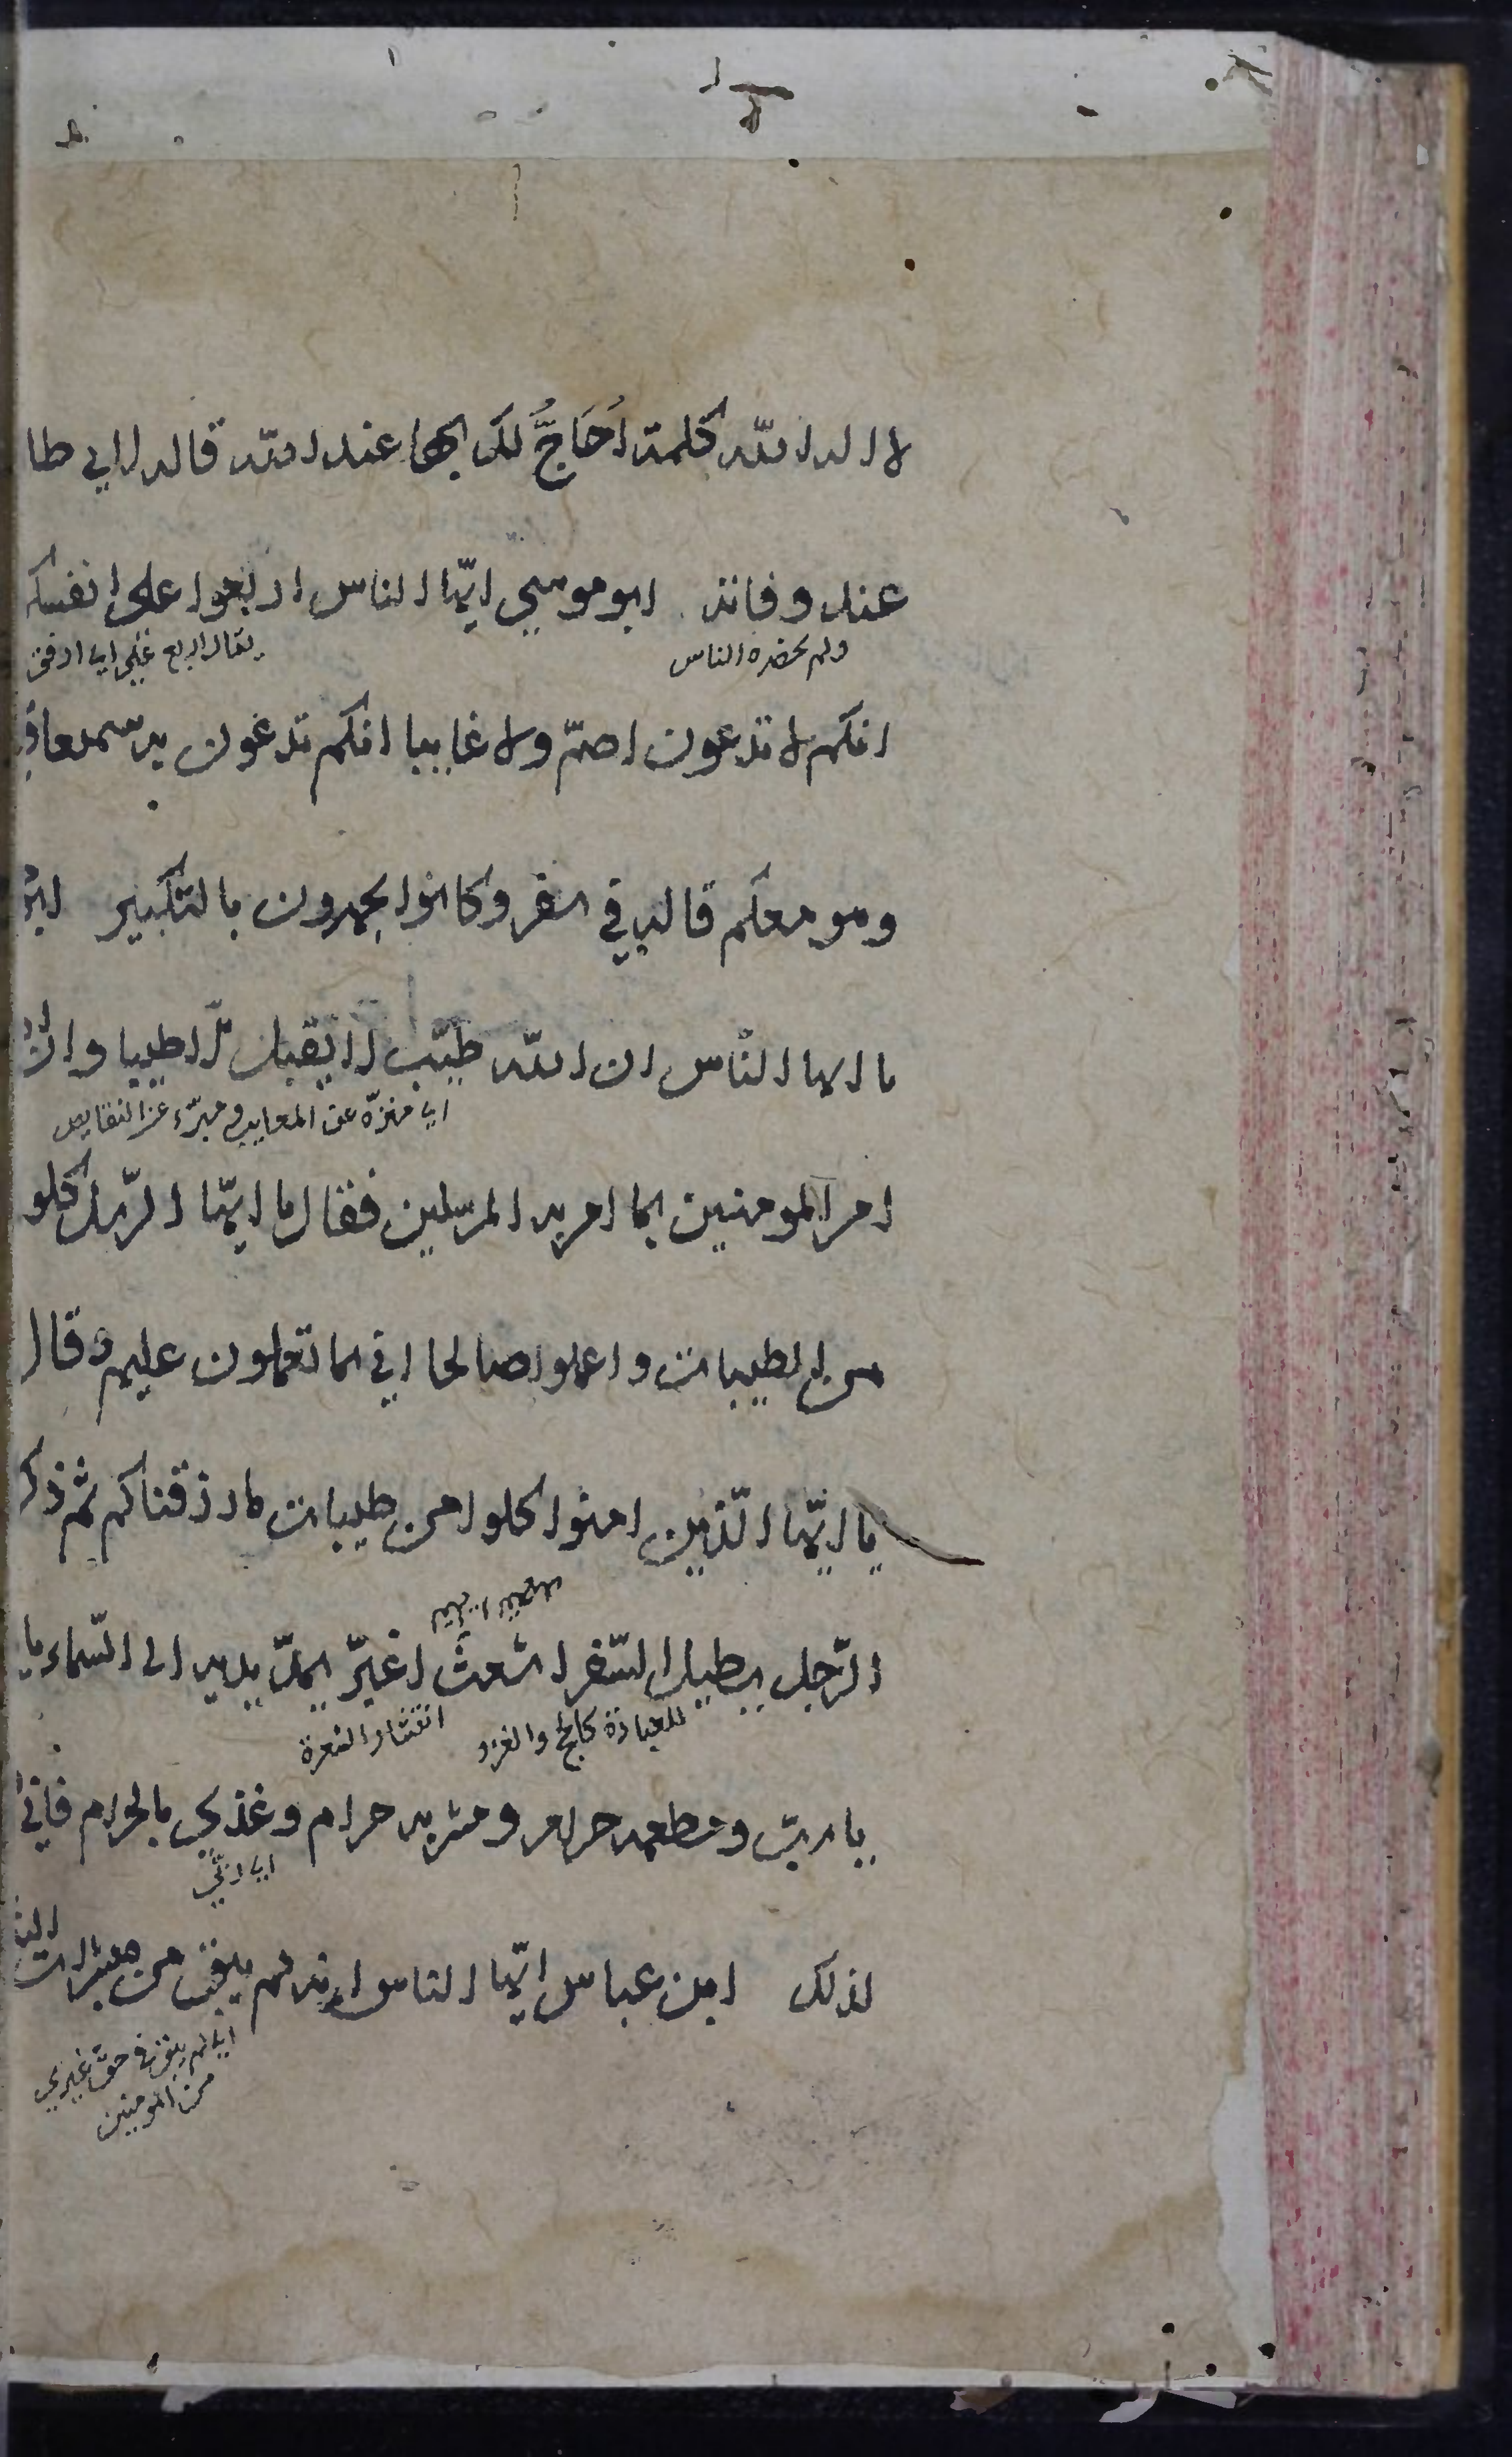 لا اله الا الله كلمة اُحَاجُّ لك بها عند الله قاله لابي طا
عند وفاته ابو موسى ايّها الناس اربعوا على انفسكم
ولم يحضره الناس
يقال اربع عليّ اي ارفق
انكم لا تدعون اصمّ ولا غايبا انكم تدعون سميعا
وهو معكم قاله في سفر وكانوا يجهرون بالتكبير
يا ايها النّاس ان الله طيّب لا يقبل الّا طيبا وانّ
اي منزّه عن المعايب ومبرّء عن النقايص
امر المومنين بما امر به المرسلين فقال يا ايّها الرّسل كلو
من الطيبات واعملوا صالحا اني بما تعملون عليم وقال
يا ايّها الّذين امنوا كلوا من طيبات ما رزقناكم ثم ذكر
الرّجل يطيل السّفر اشعث اغبرّ يمدّ يديه الى السّماء يا
للعبادة كالحج والغزو
انتشار الشعرة
يا ربّ ومطعمه حرام ومشربه حرام وغذي بالحرام فانّى
اي ربّي
لذلك ابن عباس ايّها الناس انه لم يبق من مبشرات
اي لم يبق في حق غيري
من المومنين